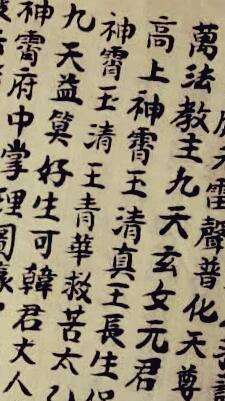 元雷聲普化天尊
萬法教主九天玄女元君
高上神霄玉清真王長生保
神霄玉清王青華救苦太乙
九天益算好生可韓君丈人
神霄府中掌理圖籙